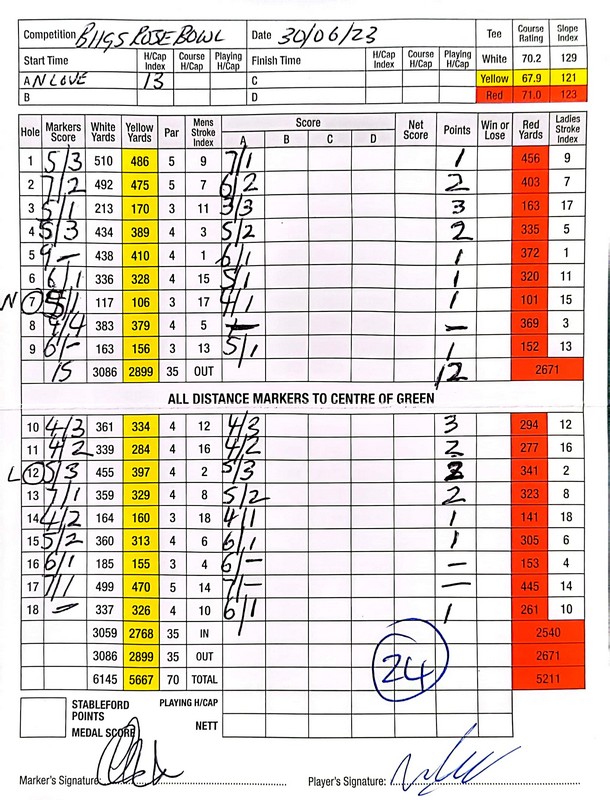 Competition BIIGS ROSE BOWL Date 30/06/23 Tee Course Rating Slope Index
Start Time H/Cap Index Course H/Cap Playing H/Cap Finish Time H/Cap Index Course H/Cap Playing H/Cap White 70.2 129
A N LOVE 13 C Yellow 67.9 121
B D Red 71.0 123
Hole Markers Score White Yards Yellow Yards Par Mens Stroke Index Score A B C D Net Score Points Win or Lose Red Yards Ladies Stroke Index
1 5/3 510 486 5 9 7/1 1 456 9
2 7/2 492 475 5 7 6/2 2 403 7
3 5/1 213 170 3 11 3/3 3 163 17
4 5/3 434 389 4 3 5/2 2 335 5
5 9 - 438 410 4 1 6/1 1 372 1
6 6/1 336 328 4 15 5/1 1 320 11
N 7 5/1 117 106 3 17 4/1 1 101 15
8 4/4 383 379 4 5 - - 369 3
9 6/- 163 156 3 13 5/1 1 152 13
15 3086 2899 35 OUT 12 2671
ALL DISTANCE MARKERS TO CENTRE OF GREEN
10 4/3 361 334 4 12 4/3 3 294 12
11 4/2 339 284 4 16 4/2 2 277 16
L 12 5/3 455 397 4 2 5/3 3 341 2
13 7/1 359 329 4 8 5/2 2 323 8
14 4/2 164 160 3 18 4/1 1 141 18
15 5/2 360 313 4 6 6/1 1 305 6
16 6/1 185 155 3 4 6/- - 153 4
17 7/1 499 470 5 14 7/- - 445 14
18 - 337 326 4 10 6/1 1 261 10
3059 2768 35 IN 2540
3086 2899 35 OUT 24 2671
6145 5667 70 TOTAL 5211
STABLEFORD POINTS PLAYING H/CAP
MEDAL SCORE NETT
Marker's Signature: Player's Signature: